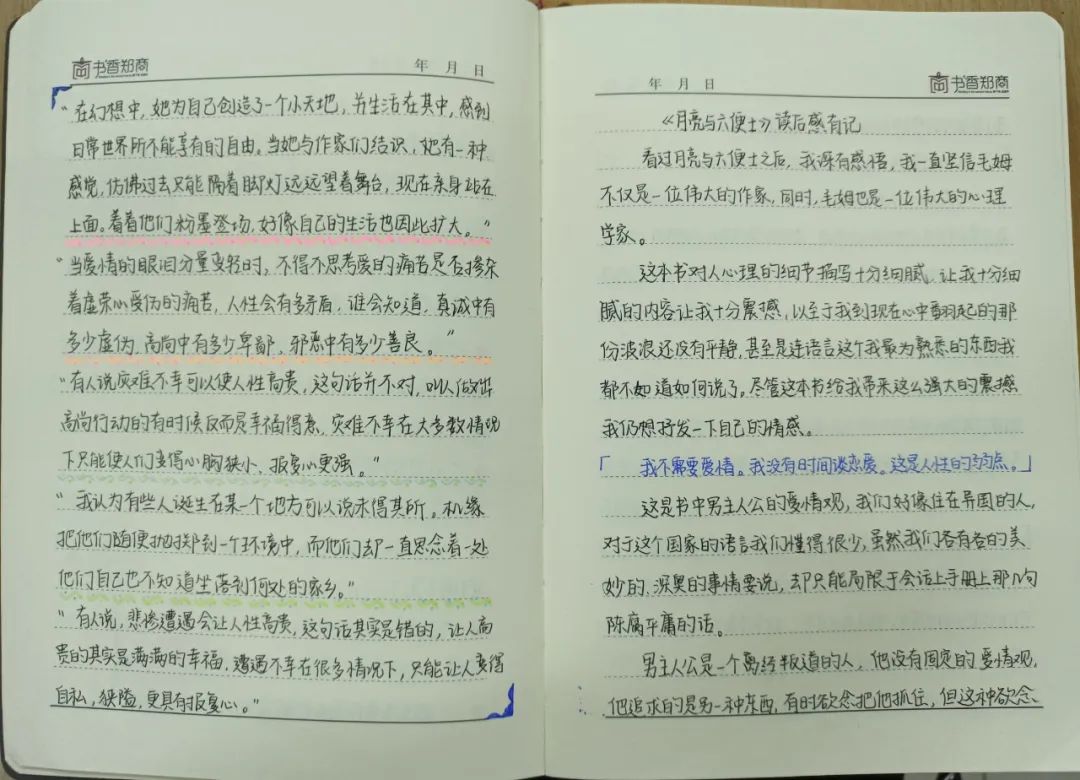 书香郑商
年 月 日
“在幻想中,她为自己创造了一个小天地,并生活在其中,感到
日常世界所不能享有的自由。当她与作家们结识,她有一种
感觉,仿佛过去只能隔着脚灯远远望着舞台,现在亲身站在
上面。看着他们粉墨登场,好像自己的生活也因此扩大。”
“当爱情的眼泪分量变轻时,不得不思考爱的痛苦是否掺杂
着虚荣心受伤的痛苦,人性会有多矛盾,谁会知道,真诚中有
多少虚伪,高尚中有多少卑鄙,邪恶中有多少善良。”
“有人说灾难不幸可以使人性高贵,这句话并不对,叫人做出
高尚行动的有时候反而是幸福得意,灾难不幸在大多数情况
下只能使人们变得心胸狭小,报复心更强。”
“我认为有些人诞生在某一个地方可以说未得其所。机缘
把他们随便抛掷到一个环境中,而他们却一直思念着一处
他们自己也不知道坐落到何处的家乡。”
“有人说,悲惨遭遇会让人性高贵,这句话其实是错的,让人高
贵的其实是满满的幸福,遭遇不幸在很多情况下,只能让人变得
自私,狭隘,更具有报复心。”
年 月 日
书香郑商
《月亮与六便士》读后感有记
看过月亮与六便士之后,我深有感悟,我一直坚信毛姆
不仅是一位伟大的作家,同时,毛姆也是一位伟大的心理
学家。
这本书对人心理的细节描写十分细腻,让我十分细
腻的内容让我十分震撼,以至于我到现在心中翻起的那
份波浪还没有平静,甚至是连语言这个我最为熟悉的东西我
都不知道如何说了,尽管这本书给我带来这么强大的震撼
我仍想抒发一下自己的情感。
「 我不需要爱情。我没有时间谈恋爱。这是人性的弱点。」
这是书中男主人公的爱情观,我们好像住在异国的人,
对于这个国家的语言我们懂得很少,虽然我们各有各的美
妙的、深奥的事情要说,却只能局限于会话上手册上那几句
陈腐平庸的话。
男主人公是一个离经叛道的人,他没有固定的爱情观,
他追求的是另一种东西,有时欲念把他抓住,但这种欲念、